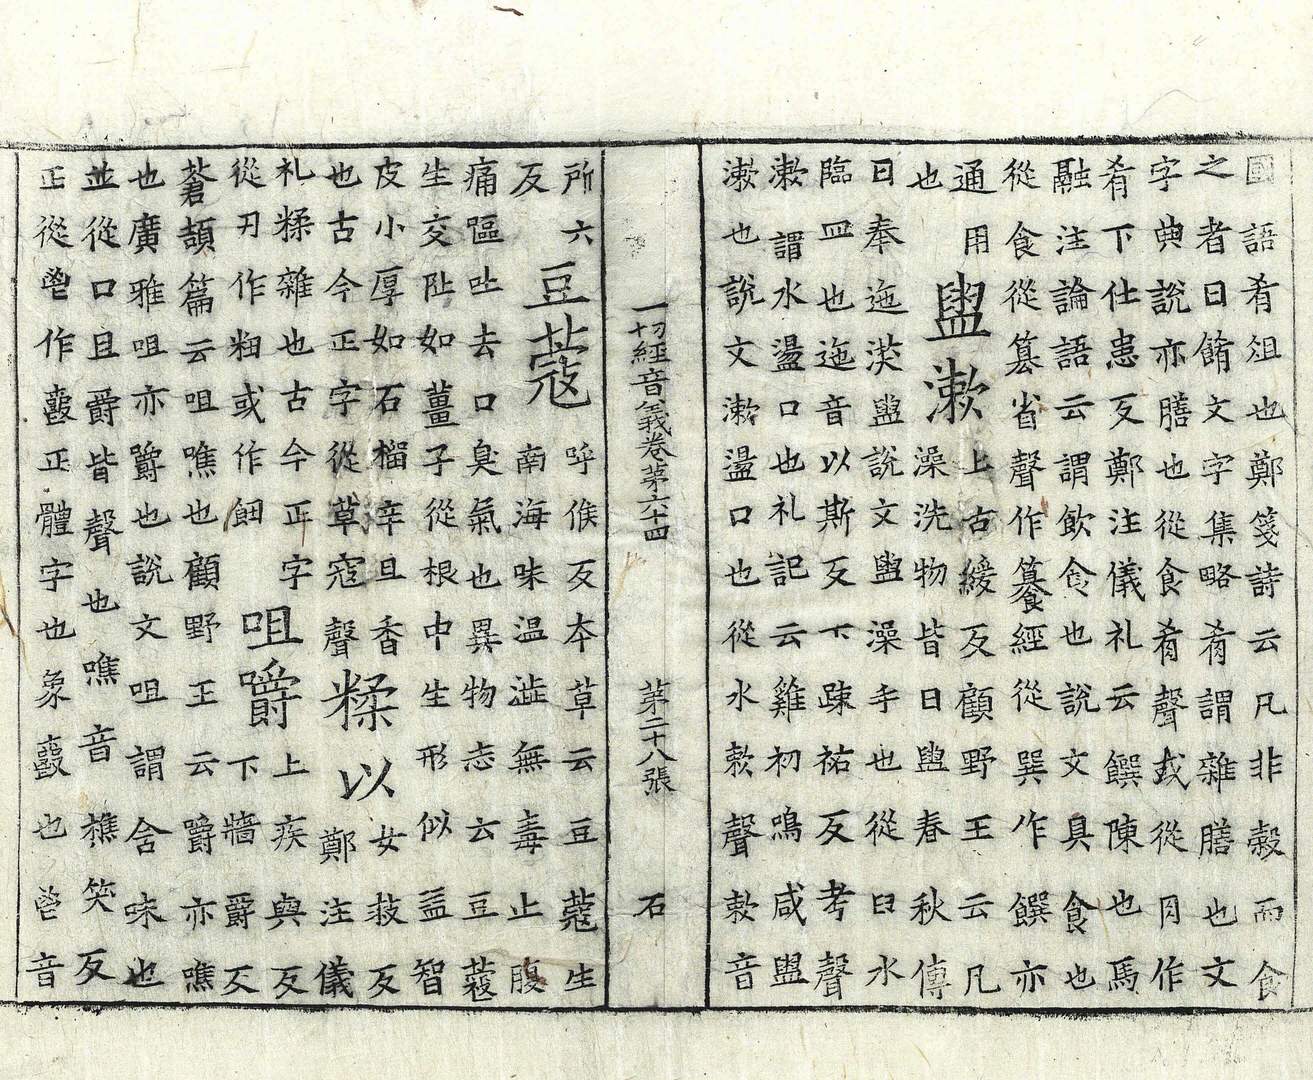 國語肴俎也鄭箋詩云凡非穀而食
之者曰餚文字集略肴謂雜膳也文
字典說亦膳也從食肴聲或從月作
肴下仕患反鄭注儀礼云饌陳也馬
融注論語云謂飲食也說文具食也
從食從篡省聲作籑經從巽作饌亦
通用
也
盥漱
上古緩反顧野王云凡
澡洗物皆曰盥春秋傳
曰奉迤沃盥說文盥澡手也從臼水
臨皿也迤音以斯反下踈祐反考聲
漱謂水盪口也礼記云雞初鳴咸盥
漱也說文漱盪口也從水欶聲欶音
一切經音義卷第六十四 第二十八張 石
所六
反
豆蔻
呼候反本草云豆蔻生
南海味温澁無毒止腹
痛嘔吐去口臭氣也異物志云豆蔻
生交阯如薑子從根中生形似益智
皮小厚如石榴辛且香
也古今正字從草寇聲
糅以
女救反
鄭注儀
礼糅雜也古今正字
從丑作粈或作䬔
咀嚼
上疾與反
下牆爵反
蒼頡篇云咀噍也顧野王云嚼亦噍
也廣雅咀亦嚼也說文咀謂含味也
並從口且爵皆聲也噍音樵笑反
正從鬯作正體字也象也鬯音